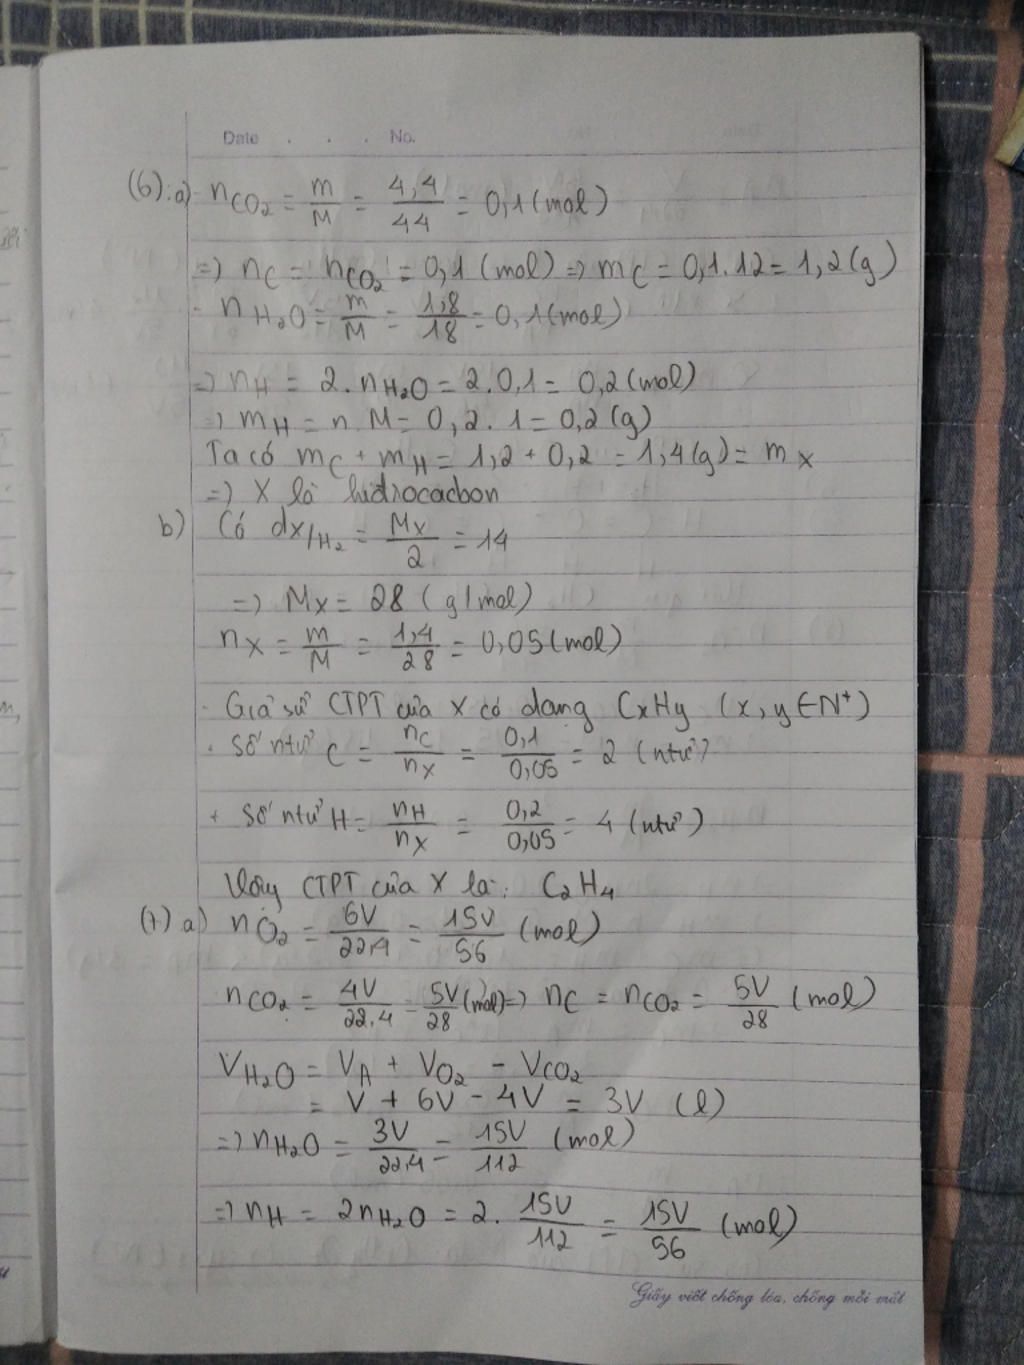 Date . . . No.
(6): a) - nCO2 = m/M = 4,4/44 = 0,1 (mol)
=> nC = nCO2 = 0,1 (mol) => mC = 0,1.12 = 1,2 (g)
- nH2O = m/M = 1,8/18 = 0,1 (mol)
=> nH = 2.nH2O = 2.0,1 = 0,2 (mol)
=> mH = n.M = 0,2.1 = 0,2 (g)
Ta có mC + mH = 1,2 + 0,2 = 1,4 (g) = mX
=> X là hidrocacbon
b) Có dX/H2 = MX/2 = 14
=> MX = 28 (g/mol)
nX = m/M = 1,4/28 = 0,05 (mol)
- Giả sử CTPT của X có dạng CxHy (x, y ∈ N+)
+ Số ntử C = nC/nX = 0,1/0,05 = 2 (ntử)
+ Số ntử H = nH/nX = 0,2/0,05 = 4 (ntử)
Vậy CTPT của X là: C2H4
(7) a) nO2 = 6V/22,4 = 15V/56 (mol)
nCO2 = 4V/22,4 = 5V/28 (mol) => nC = nCO2 = 5V/28 (mol)
VH2O = VA + VO2 - VCO2
= V + 6V - 4V = 3V (l)
=> nH2O = 3V/22,4 = 15V/112 (mol)
=> nH = 2nH2O = 2. 15V/112 = 15V/56 (mol)
Giấy viết chống lóa, chống mỏi mắt